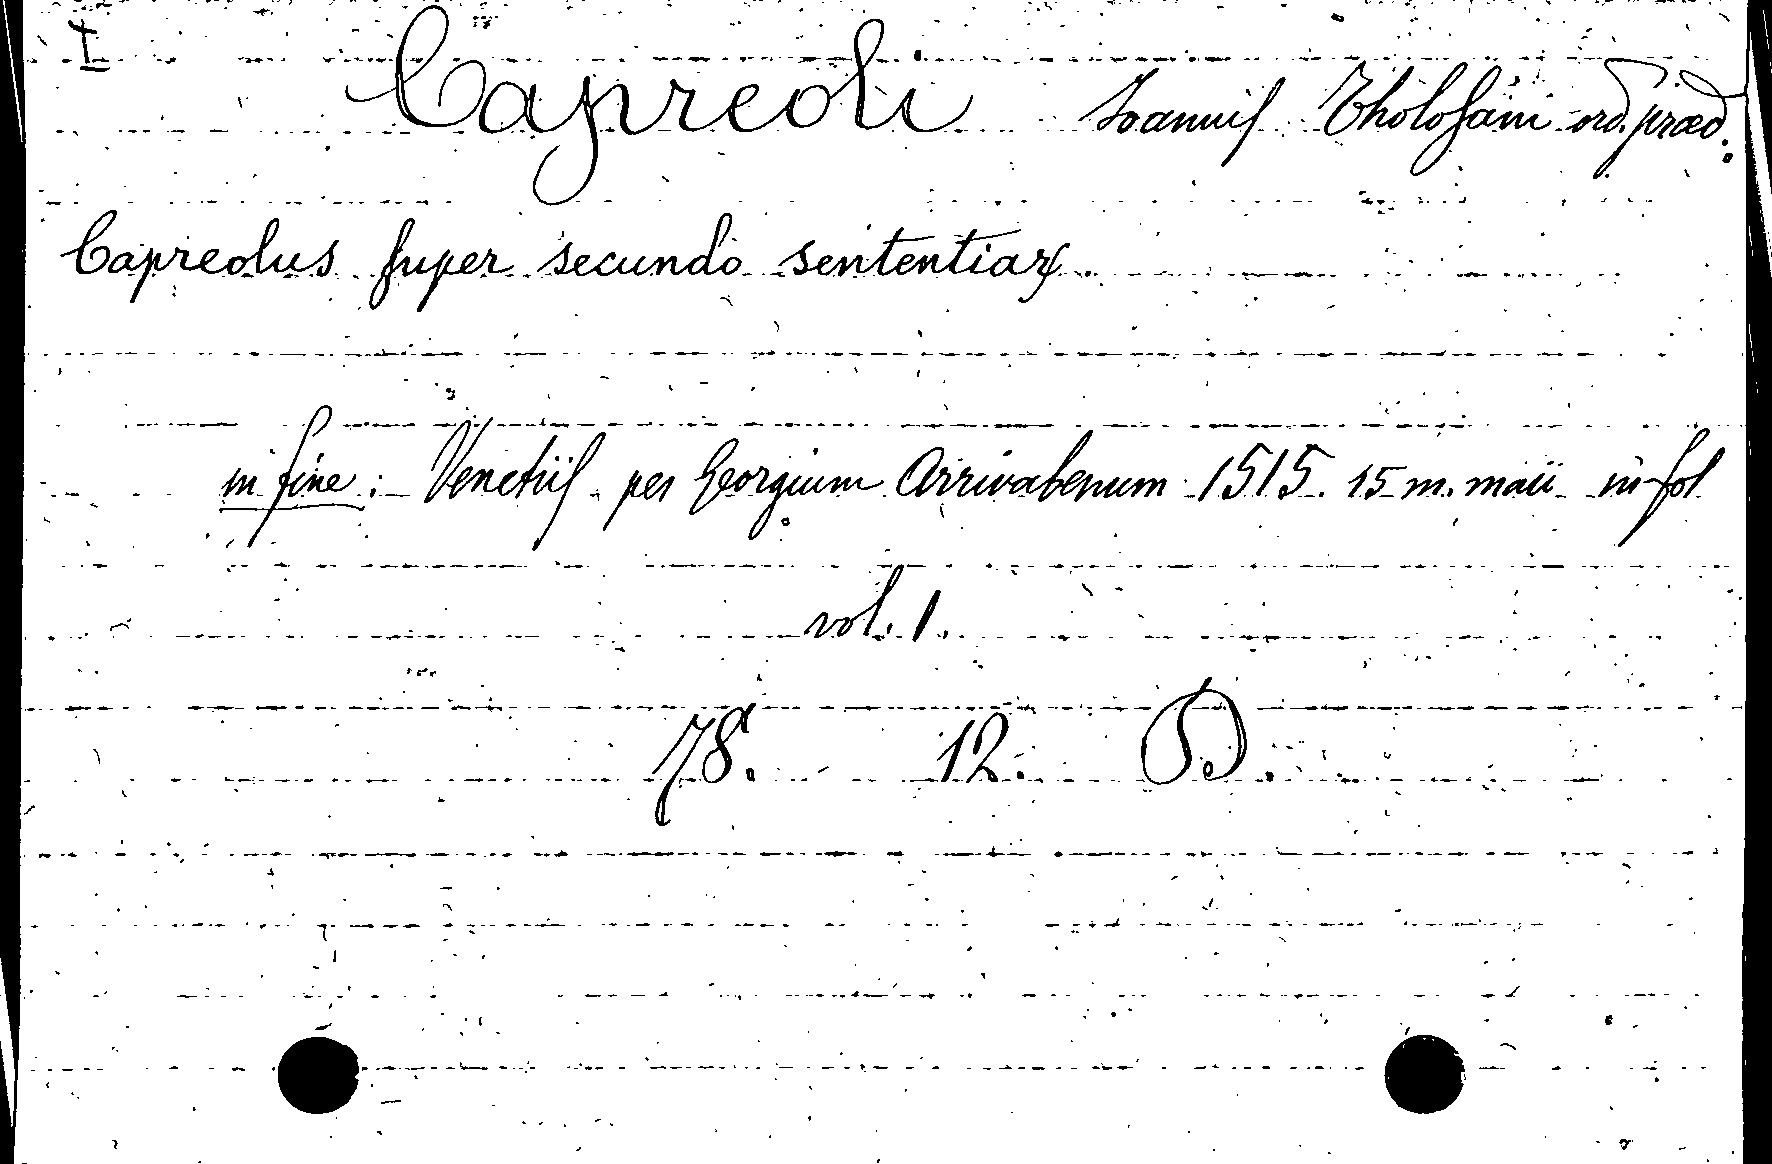 I
Capreoli Ioannis Tholosani ord. præd.
Capreolus super secundo sententiaꝝ.
in fine: Venetiis per Georgium Arrivabenum 1515. 15 m. maii in fol
vol. 1.
78. 12. D.